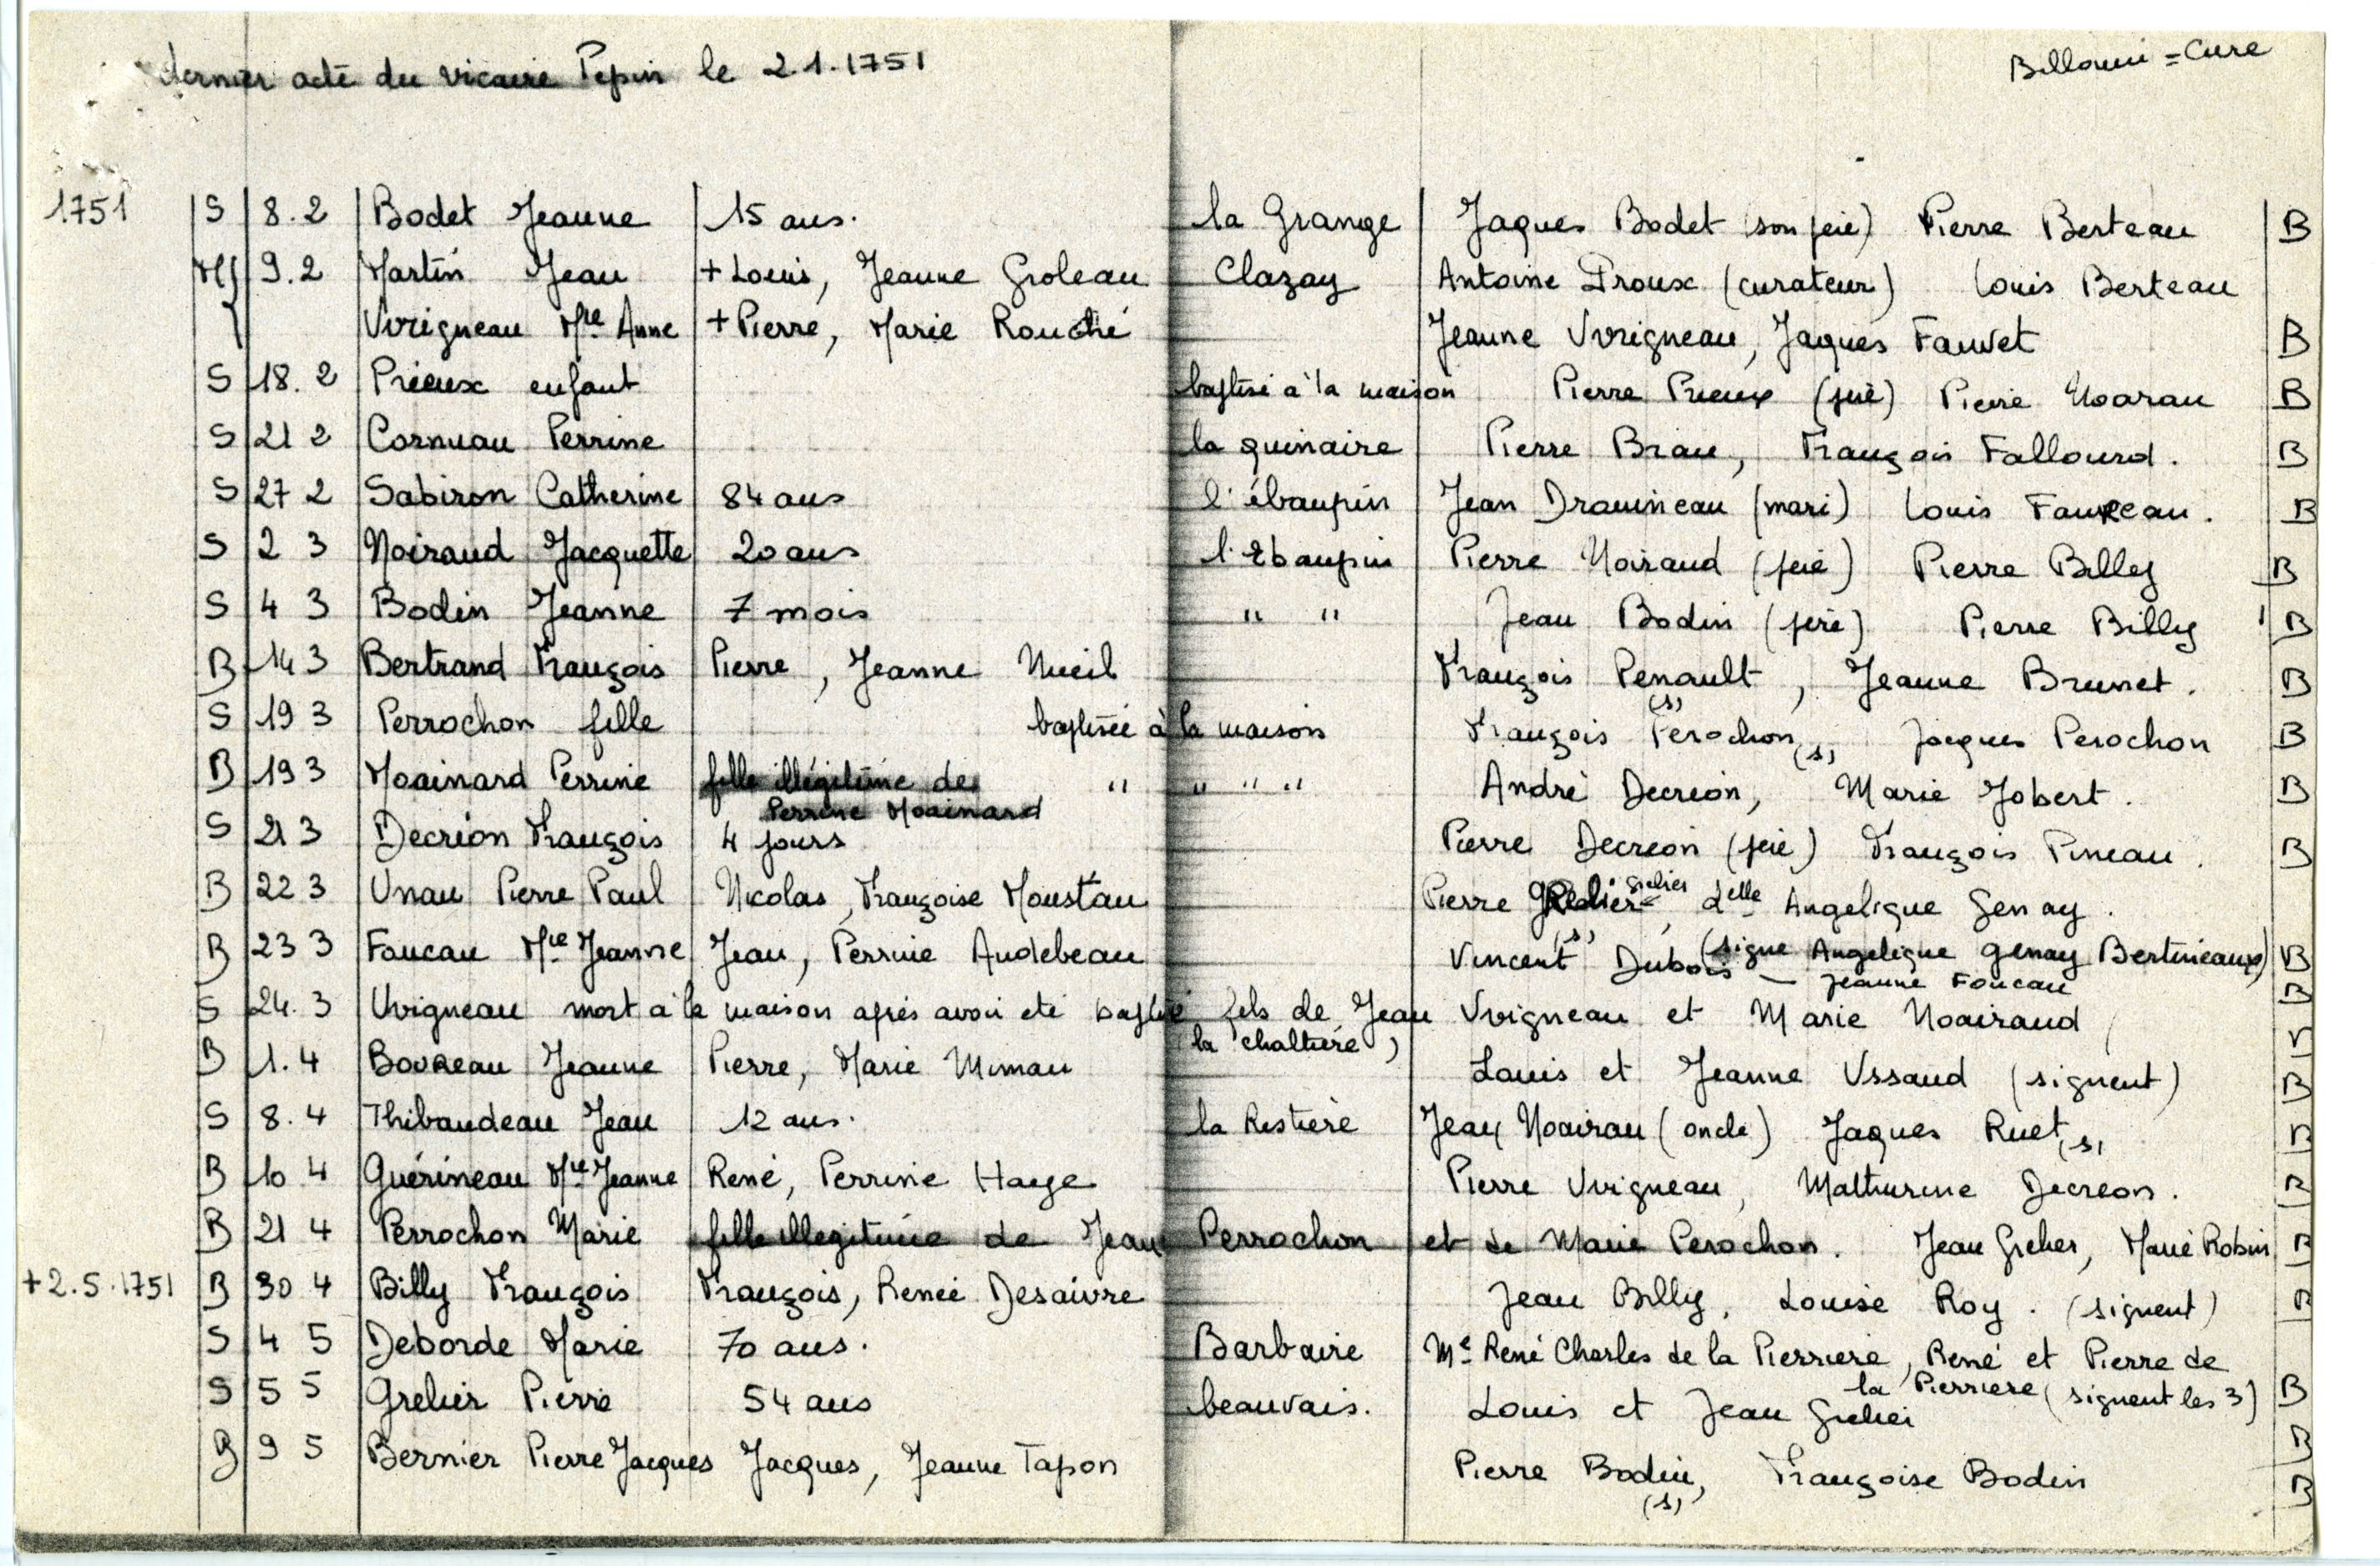 dernier acte du vicaire Pepin le 2.1.1751
Billouin = Cure
1751 S 8.2 Bodet Jeanne 15 ans. la Grange Jaques Bodet (son père) Pierre Berteau B
M 9.2 Martin Jean + Louis, Jeanne Groleau Clazay Antoine Proux (curateur) Louis Berteau
Vvrigneau Mie Anne + Pierre, Marie Rouché Jeanne Vvrigneau, Jaques Fauvet B
S 18.2 Prieux enfant baptisé à la maison Pierre Prieux (père) Pierre Noarau B
S 21 2 Cornuau Perrine la quinaire Pierre Brau, François Fallourd. B
S 27 2 Sabiron Catherine 84 ans l'ébaupin Jean Drauineau (mari) Louis Faureau. B
S 2 3 Noiraud Jacquette 20 ans l'Ebaupin Pierre Noiraud (père) Pierre Billy B
S 4 3 Bodin Jeanne 7 mois " " Jean Bodin (père) Pierre Billy B
B 14 3 Bertrand François Pierre, Jeanne Nueil François Penault (s), Jeanne Brunet. B
S 19 3 Perrochon fille baptisée à la maison François Perochon (s), Jacques Perochon B
B 19 3 Moainard Perrine fille illégitime de " " " " André Decréon, Marie Jobert. B
Perrine Moainard
S 21 3 Decréon François 4 jours Pierre Decreon (père) François Pineau. B
B 22 3 Unau Pierre Paul Nicolas, Françoise Moustau Pierre Grelier (s), delle Angelique Genay. B
(signe Angelique Genay Bertineaux)
B 23 3 Foucau Mie Jeanne Jean, Perrine Audebeau Vincent Dubois — Jeanne Foucau B
S 24.3 Vvrigneau mort à la maison après avoir été baptisé fils de Jean Vvrigneau et Marie Noairaud
(la chaltière)
B 1.4 Boureau Jeanne Pierre, Marie Mimau Louis et Jeanne Ussaud (signent) B
S 8.4 Thibaudeau Jean 12 ans. la Restière Jean Noairau (oncle) Jaques Ruet (s) B
B 10 4 Guérineau Mie Jeanne René, Perrine Haye Pierre Vvrigneau, Mathurine Decreon. B
B 21 4 Perrochon Marie fille illegitime de Jean Perrochon et de Marie Perochon. Jean Grelier, Marie Robin B
+ 2.5.1751 B 30 4 Billy François François, Renée Desaivre Jean Billy, Louise Roy. (signent) B
S 4 5 Deborde Marie 70 ans. Barbaire Me René Charles de la Pierriere, René et Pierre de
la Pierriere (signent les 3) B
S 5 5 Grelier Pierre 54 ans beauvais. Louis et Jean Grelier B
B 9 5 Bernier Pierre Jacques Jacques, Jeanne Tapon Pierre Bodin (s), Françoise Bodin B